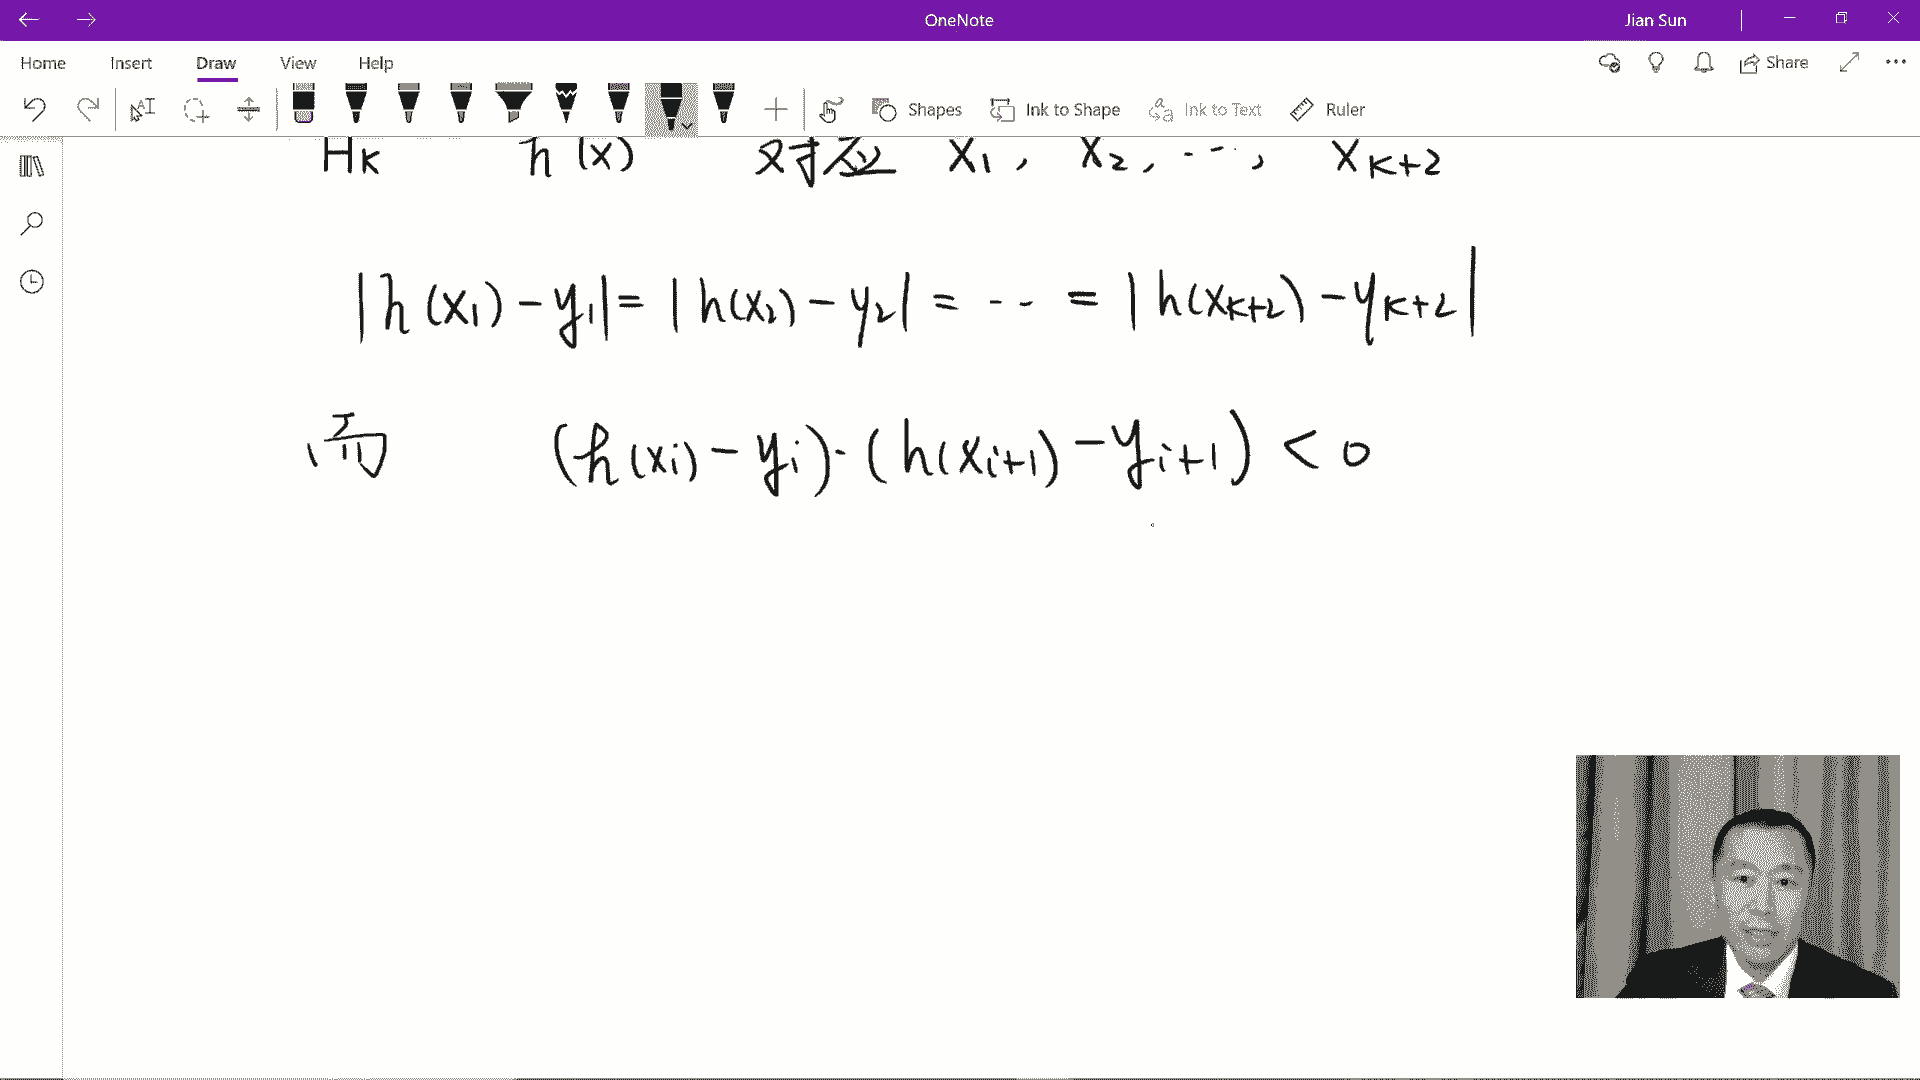 OneNote Jian Sun
Home Insert Draw View Help Share
Shapes Ink to Shape Ink to Text Ruler
Hk h(x) 对应 x₁, x₂, ..., xk+2
|h(x₁)-y₁|=|h(x₂)-y₂|=..=|h(xk+2)-yk+2|
而 (h(xi)-yi)·(h(xi+1)-yi+1)<0